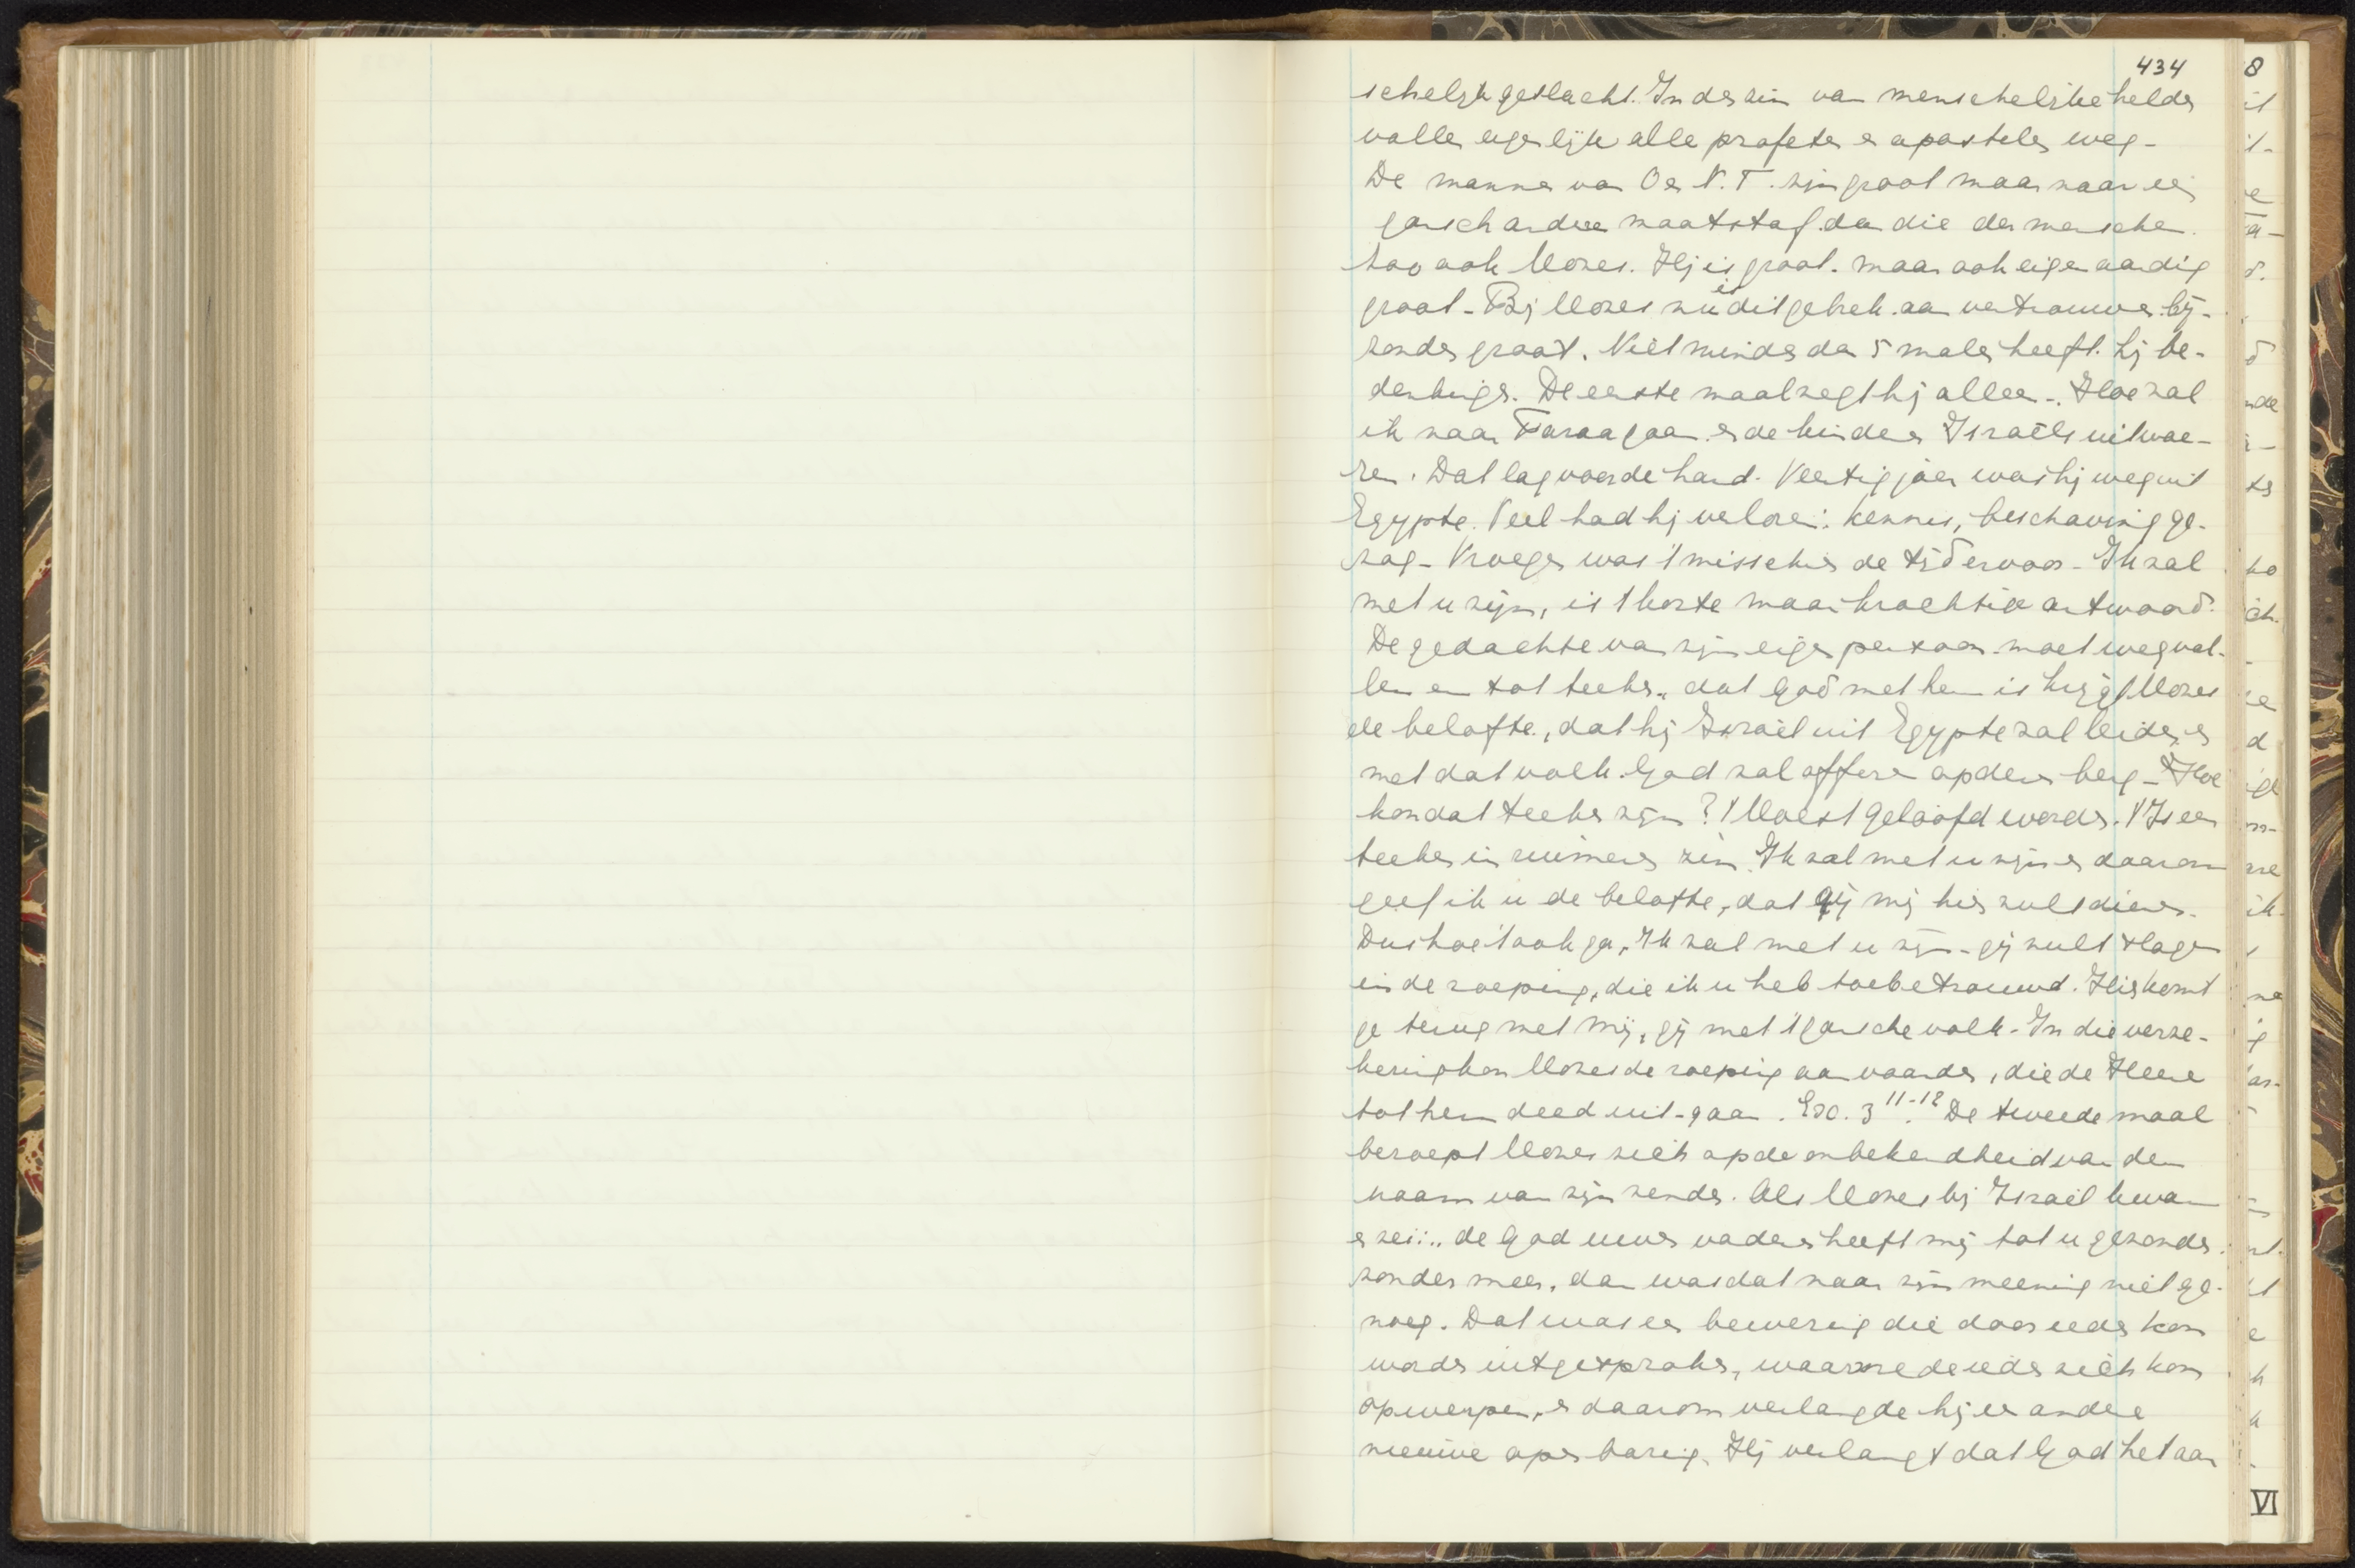 434
schelijk geslacht. In den zin van menschelijke helden
vallen eigenlijk alle profeten en apostelen weg -
De mannen van O en N. T. zijn groot maar naar een
gansch andere maatstaf dan die der menschen.
Zoo ook Mozes. Hij is groot. maar ook eigenaardig
groot - Bij Mozes nu is dit gebrek aan vertrouwen bij-
zonder groot. Niet minder dan 5 malen heeft hij be-
denkingen. De eerste maal zegt hij alleen -. Hoe zal
ik naar Farao gaan en de kinderen Israëls uitvoe-
ren. Dat lag voor de hand. Veertig jaar was hij weg uit
Egypte. Veel had hij verloren: kennis, beschaving ge-
zag - Vroeger was 't misschien de tijd ervoor - Ik zal
met u zijn, is 't korte maar krachtige antwoord.
De gedachte van zijn eigen persoon moet wegval-
len en tot teeken, dat God met hem is krijgt Mozes
de belofte, dat hij Israël uit Egypte zal leiden en
met dat volk God zal offeren op den berg - Hoe
kon dat teeken zijn? 't Moest geloofd worden. 't Is een
teeken in ruimeren zin. Ik zal met u zijn en daarom
geef ik u de belofte, dat gij mij hier zult dienen.
Dus hoe 't ook ga, Ik zal met u zijn - gij zult slagen
in de roeping, die ik u heb toebetrouwd. Hier komt
ge terug met mij, gij met 't gansche volk - In die verze-
kering kon Mozes de roeping aanvaarden, die de Heere
tot hem deed uit-gaan. Exo. 3 11-12. De tweede maal
beroept Mozes zich op de onbekendheid van den
naam van zijn zender. Als Mozes bij Israël kwam
en zei: „ de God uwer vaderen heeft mij tot u gezonden
zonder meer, dan was dat naar zijn meening niet ge-
noeg. Dat was een bewering die door ieder kon
worden uitgesproken, waarmede ieder zich kon
opwerpen, en daarom verlangde hij een andere
nieuwe openbaring. Hij verlangt dat God het aan
8
VI